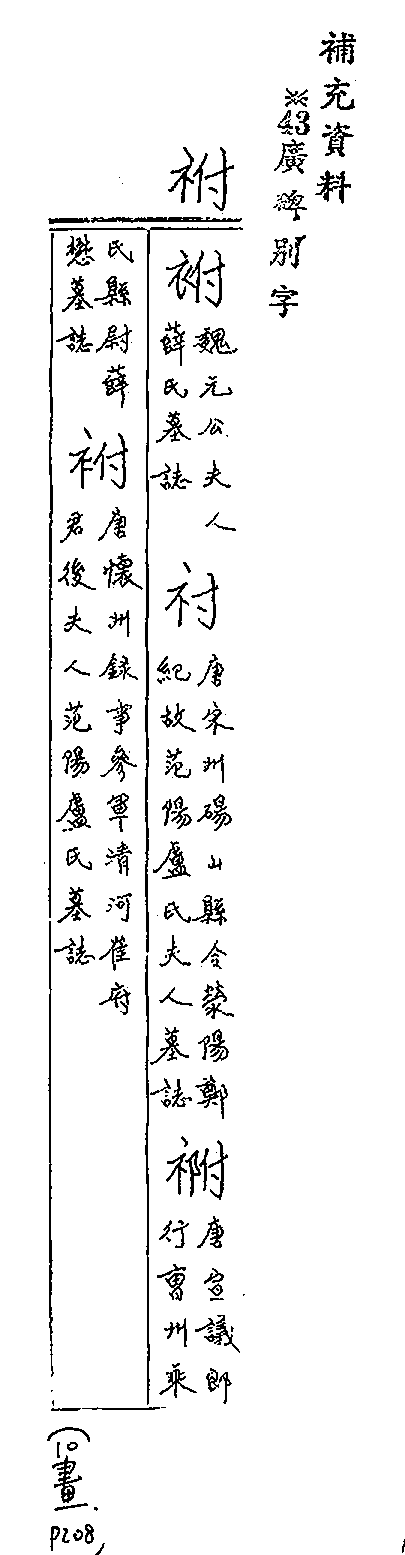 補充資料
※43廣碑別字
祔
魏元公夫人
薛氏墓誌
唐宋州碭山縣令滎陽鄭
紀故范陽盧氏夫人墓誌
唐宣議郎
行曹州乘
氏縣尉薛
懋墓誌
祔
唐懷州録事參軍清河崔府
君後夫人范陽盧氏墓誌
(10畫)
P208,